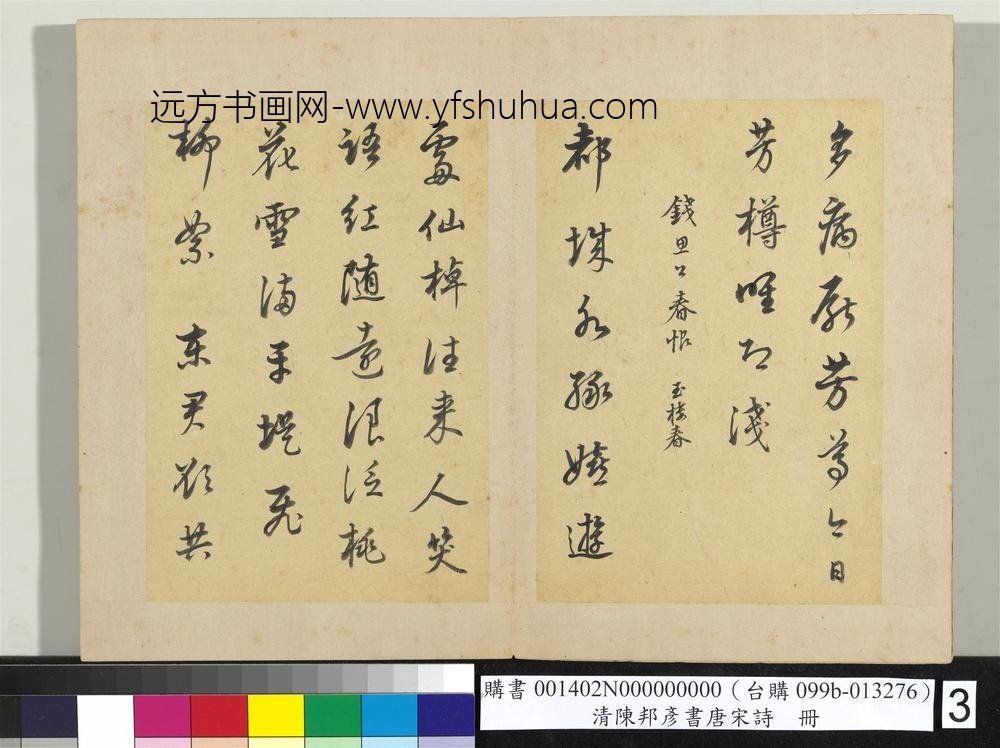 远方书画网-www.yfshuhua.com
多病厭芳尊今日
芳樽唯恐淺
錢思公春恨 玉樓春
都城水綠嬉遊
處仙棹往来人笑
語紅隨遠浪泛桃
花雪滿平堤飛
柳絮東君欲共
購書 001402N000000000（台購 099b-013276）
清陳邦彥書唐宋詩 冊
3